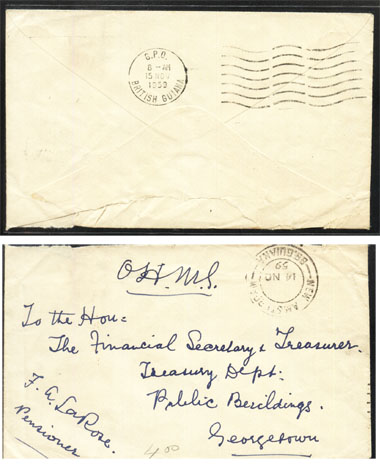 G.P.O.
8 - AM
15 NOV
1959
BRITISH GUIANA
NEW AMSTERDAM
14 NO
59
BR. GUIANA
O.H.M.S.
To the Hon:
The Financial Secretary & Treasurer.
Treasury Dept:
Public Buildings.
Georgetown
F. A. LaRose.
Pensioner
4.00